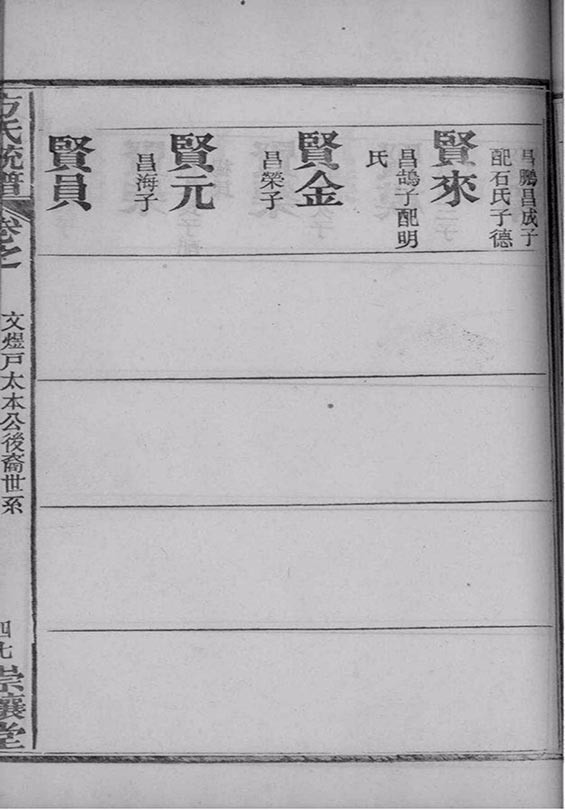 昌鵬昌成子
配石氏子德
賢來
昌鵠子配明
氏
賢金
昌榮子
賢元
昌海子
賢員
方氏統譜
卷之
文煜戸太本公後裔世系
四七
崇讓堂